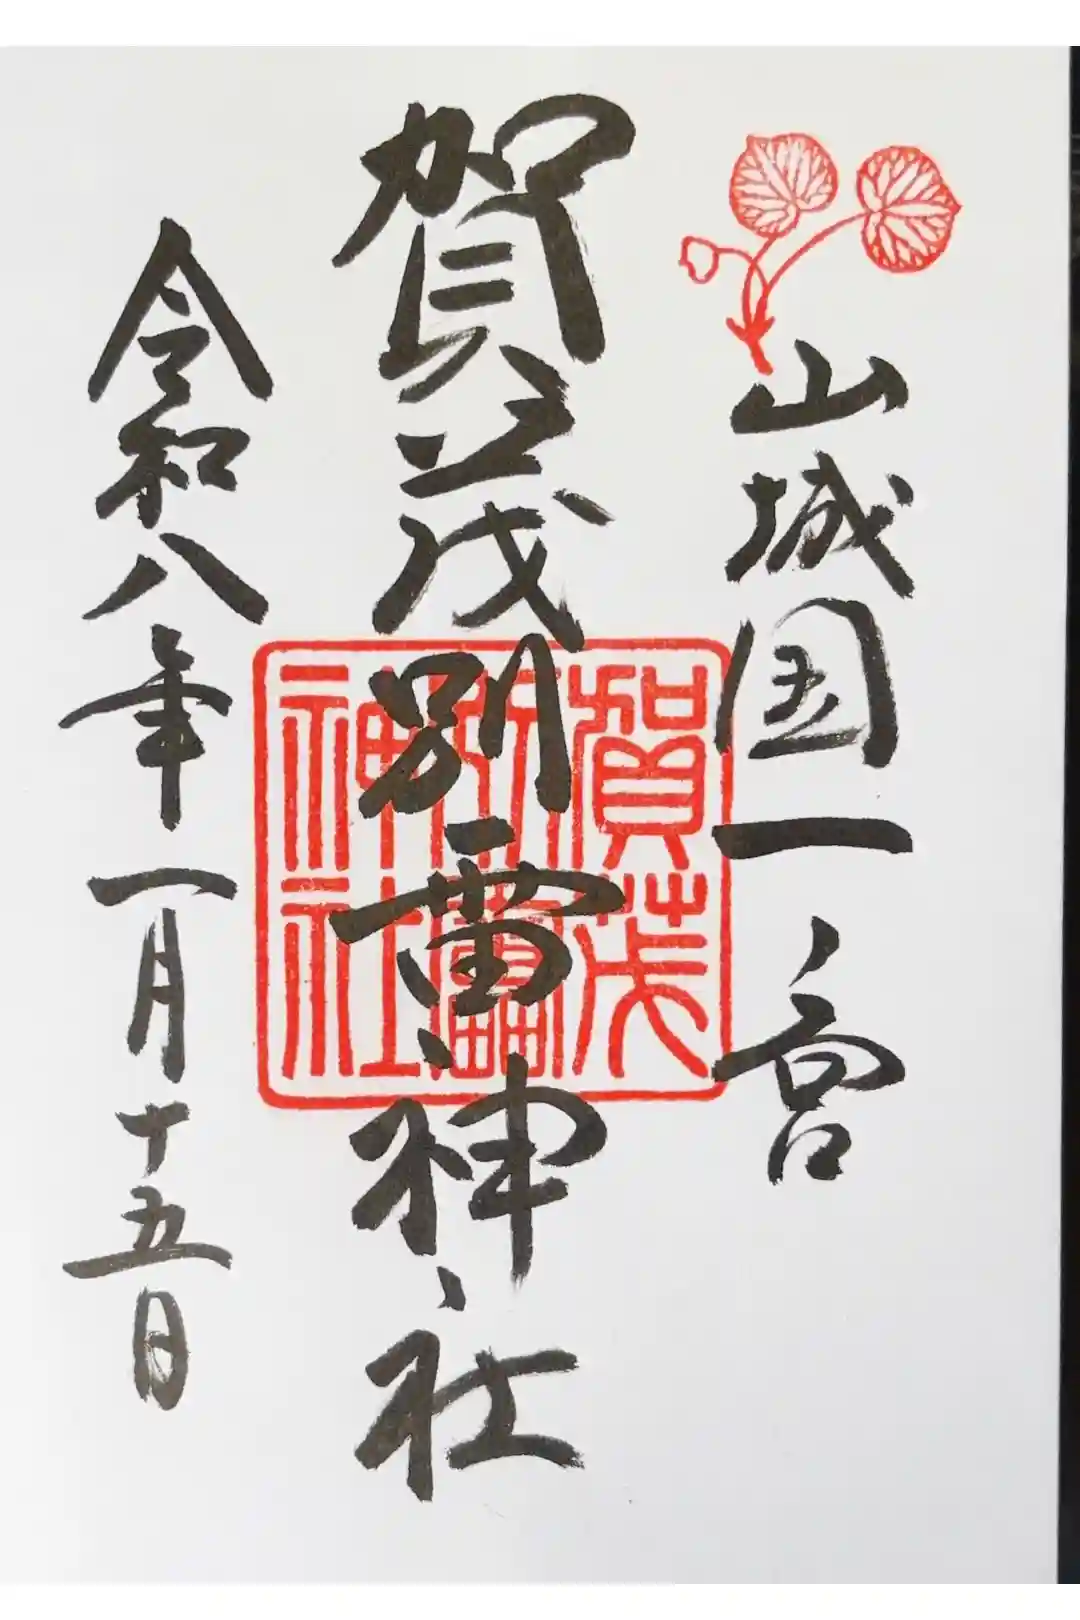 山城国一宮
賀茂別雷神社
令和八年一月十五日
賀茂
別雷
神社